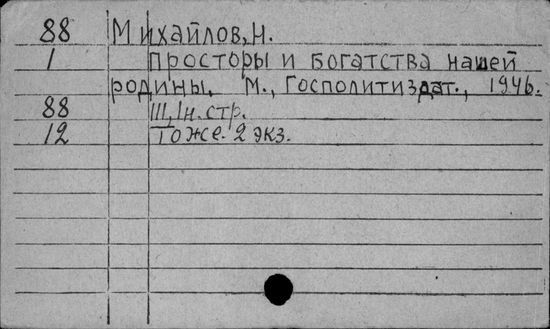 88 Михайлов, Н.
1 Просторы и богатства нашей
родины, М., Госполитиздат., 1946.
88 III, 1н. стр.
12 Тоже. 2 экз.